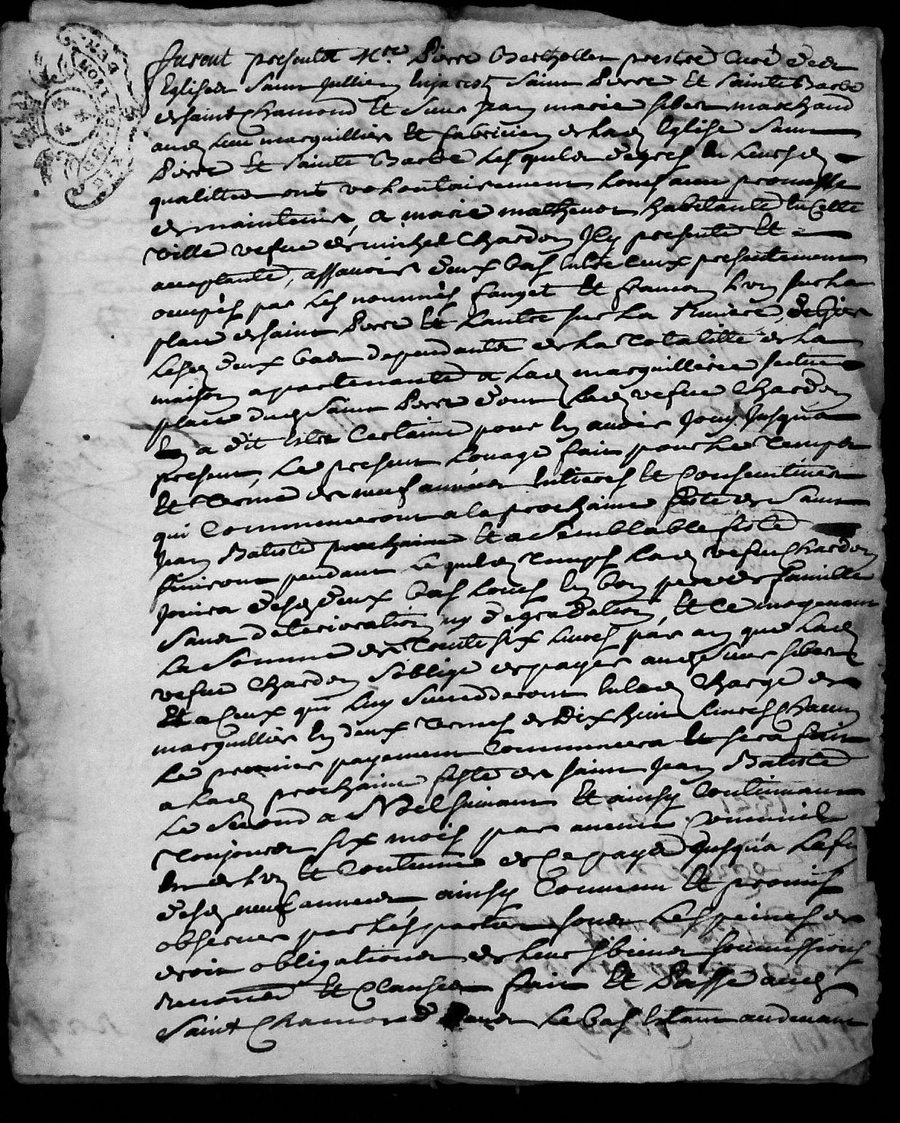 furent presents Mre Pierre Berthollet prestre Curé des
Eglises Saint Jullien Saint Pierre et Sainte Barbe
de Saint Chamond et Sieur Jean marie siber marchand
aud lieu marguillier et fabricien de lad Eglise Saint
Pierre et Sainte Barbe Lesquels de gres en leursd
qualittes ont volontairement loué avec promesse
de maintenir, a marie mathevot habitante en Cette
ville vefue de michel Chardon Icy presente et
acceptante, assavoir deux bas entre ceux presentement
occupés par les nommés fanget et l'un sur la
place de Saint Pierre et l'autre sur la Riviere de Gier
Lesd deux bas dependants de la totalitté de la
maison apartenante a lad marguillerie scituée
place dud Saint Pierre dont lad vefue Chardon
a dit estre Certaine pour en avoir Jouy Jusqua
present, Le present louage fait pour Le temps
et terme de neuf années entieres et Consecutives
qui Commenceront a la prochaine feste de Saint
Jean Batiste prochaine et a semblable feste
finiront pendant Lequel temps lad vefue Chardon
Jouira desd deux bas loués en bon pere de famille
Sans deterioration ny degradation, et Ce moyenant
La Somme de trente six livres par an que lad
vefue Chardon S'oblige de payer aud Sieur siber
Et a Ceux qui luy Succederont en lad Charge de
marguillier en deux termes de Dix huit livres Chacun
Le premier payement Commencera et sera fait
a lad prochaine feste de Saint Jean Batiste
Le second a Noel suivant et ainsy Continuant
toujours de six mois par avance
et Continuer de Ce payer Jusqu'a la fin
desd neuf années ainsy Convenu et promis
observer par les parties sous Les peines de
droit obligations de leurs biens soumissions
renoncé et Clauses fait et Passé aud
Saint Chamond Le bas estant